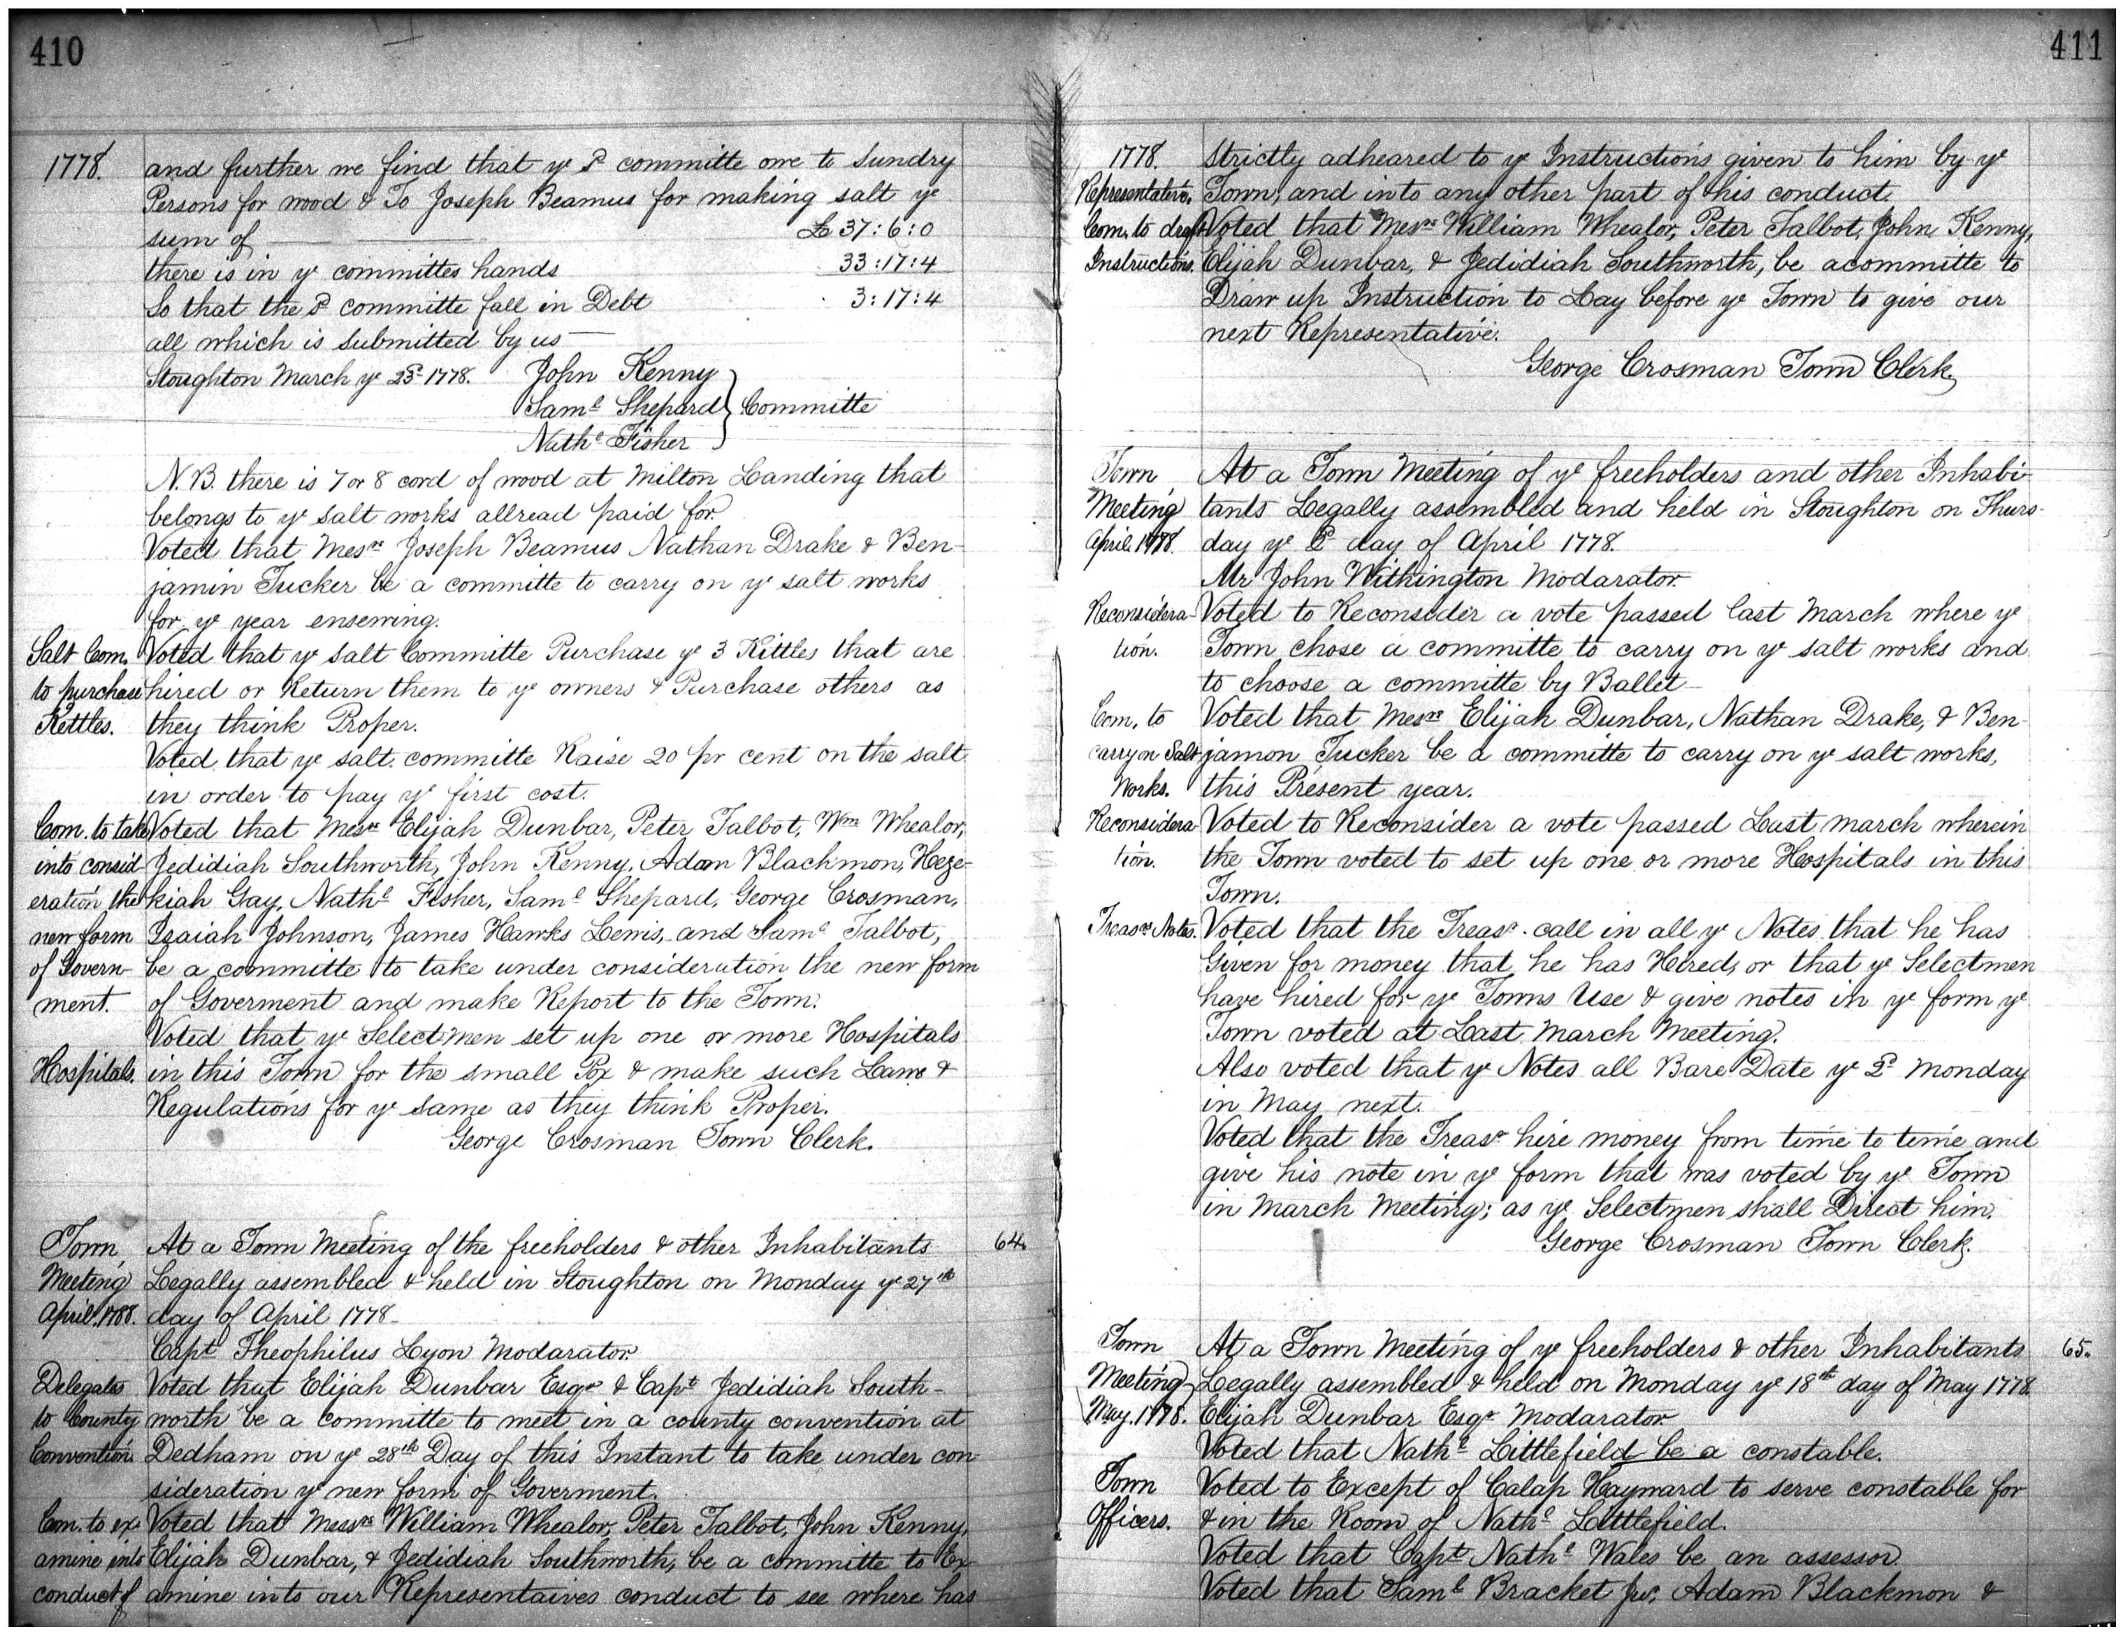 410
1778.
and further we find that ye sd committe owe to Sundry
Persons for wood & To Joseph Beamus for making salt ye
sum of £37:6:0
there is in ye committes hands 33:17:4
So that the sd committe fall in Debt 3:17:4
all which is submitted by us
Stoughton March ye 23d 1778. John Kenny
Saml Shepard } Committe
Nathl Fisher
N.B. there is 7 or 8 cord of wood at Milton Landing that
belongs to ye salt works allread paid for.
Voted that Mesrs Joseph Beamus Nathan Drake & Ben-
jamin Tucker be a committe to carry on ye salt works
for ye year ensewing.
Salt Com. Voted that ye Salt Committe Purchase ye 3 Kittles that are
to purchase hired or Return them to ye owners & Purchase others as
Kettles. they think Proper.
Voted that ye salt committe Raise 20 pr cent on the salt
in order to pay ye first cost.
Com. to take Voted that Mesrs Elijah Dunbar, Peter Talbot, Wm Whealor,
into consid Jedidiah Southworth, John Kenny, Adam Blackmon, Heze-
eration the kiah Gay, Nathl Fisher, Saml Shepard, George Crosman,
new form Isaiah Johnson, James Hawks Lewis, and Saml Talbot,
of Govern- be a committe to take under consideration the new form
ment. of Goverment and make Report to the Town.
Voted that ye Selectmen set up one or more Hospitals
Hospitals. in this Town for the small Pox & make such Laws &
Regulations for ye same as they think Proper.
George Crosman Town Clerk.
Town At a Town Meeting of the freeholders & other Inhabitants 64.
Meeting Legally assembled & held in Stoughton on Monday ye 27th
April. 1788. day of April 1778
Capt Theophilus Lyon Modarator.
Delegates Voted that Elijah Dunbar Esqr & Capt Jedidiah South-
to County worth be a committe to meet in a county convention at
Convention. Dedham on ye 28th Day of this Instant to take under con
sideration ye new form of Goverment.
Com. to ex- Voted that Messrs William Whealor, Peter Talbot, John Kenny,
amine into Elijah Dunbar, & Jedidiah Southworth, be a committe to Ex-
conduct of amine into our Representaives conduct to see where has
411
1778. Strictly adheared to ye Instructions given to him by ye
Representative. Town, and into any other part of his conduct.
Com. to draft Voted that Mesrs William Whealor, Peter Talbot, John Kenny,
Instructions. Elijah Dunbar, & Jedidiah Southworth, be acommitte to
Draw up Instruction to Lay before ye Town to give our
next Representative.
George Crosman Town Clerk.
Town At a Town Meeting of ye freeholders and other Inhabi-
Meeting tants Legally assembled and held in Stoughton on Thurs-
April. 1778. day ye 2d day of April 1778.
Mr John Withington Modarator.
Reconsidera- Voted to Reconsider a vote passed last March where ye
tion. Town chose a committe to carry on ye salt works and
to choose a committe by Ballet
Com. to Voted that Mesrs Elijah Dunbar, Nathan Drake, & Ben-
carry on Salt jamon Tucker be a committe to carry on ye salt works,
Works. this Present year.
Reconsidera- Voted to Reconsider a vote passed Last march wherein
tion. the Town voted to set up one or more Hospitals in this
Town.
Treasrs Notes. Voted that the Treasr. call in all ye Notes that he has
Given for money that he has Hired, or that ye Selectmen
have hired for ye Towns Use & give notes in ye form ye
Town voted at Last March Meeting.
Also voted that ye Notes all Bare Date ye 2d Monday
in May next.
Voted that the Treasr hire money from time to time and
give his note in ye form that was voted by ye Town
in March Meeting; as ye Selectmen shall Direct him.
George Crosman Town Clerk.
Town At a Town Meeting of ye freeholders & other Inhabitants 65.
Meeting Legally assembled & held on Monday ye 18th day of May 1778
May. 1778. Elijah Dunbar Esqr Modarator
Voted that Nathl Littlefield be a constable.
Town Voted to Except of Calap Hayward to serve constable for
Officers. & in the Room of Nathl Littlefield.
Voted that Capt Nathl Wales be an assessor
Voted that Saml Bracket Jur, Adam Blackmon &